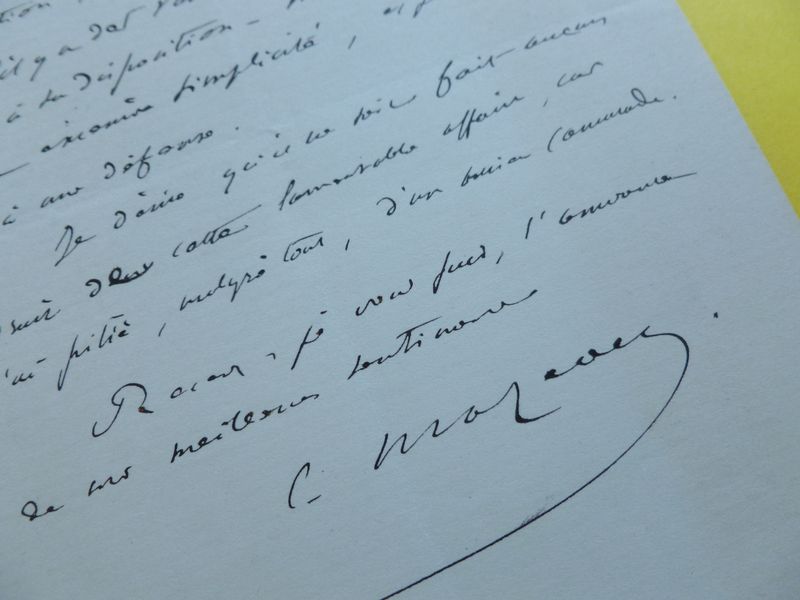 il y a des
à sa disposition -
extrême simplicité, et
à me défense.
Je désire qu'il ne soit fait aucun
bruit de cette lamentable affaire, car
j'ai pitié, malgré tout, d'un ancien camarade.
Recevez, je vous prie, l'assurance
de mes meilleurs sentiments
C. Mazeau